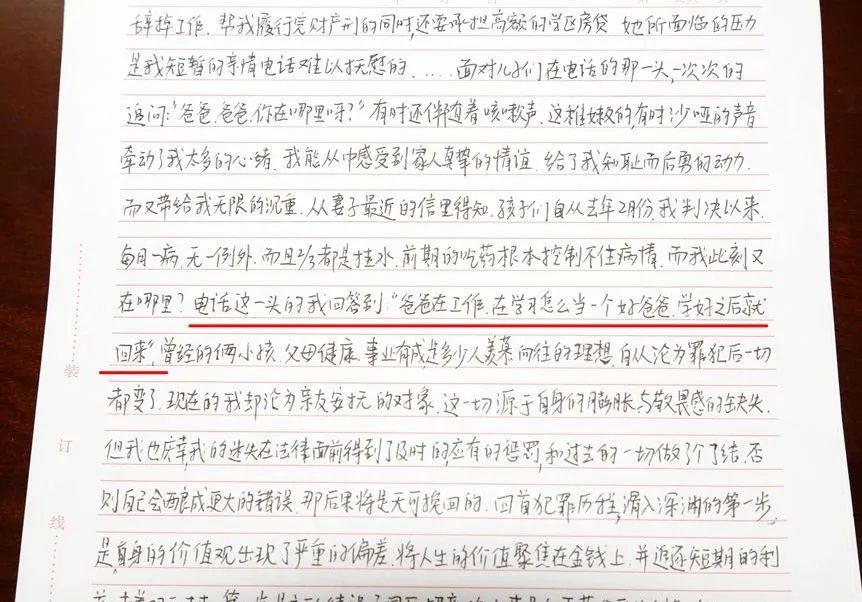 辞掉工作、帮我履行完财产刑的同时,还要承担高额的学区房贷 她所面临的压力
是我短暂的亲情电话难以抚慰的......面对儿子们在电话的那一头,一次次的
追问:"爸爸,爸爸,你在哪里呀?"有时还伴随着咳嗽声,这稚嫩的,有时沙哑的声音
牵动了我太多的心绪,我能从中感受到家人真挚的情谊,给了我知耻而后勇的动力.
而又带给我无限的沉重.从妻子最近的信里得知,孩子们自从去年2月份,我判决以来,
每月一病,无一例外.而且2/3都是挂水,前期的吃药根本控制不住病情,而我此刻又
在哪里?电话这一头的我回答到:"爸爸在工作,在学习怎么当一个好爸爸,学好之后就
回来",曾经的俩小孩,父母健康,事业有成,是多少人羡慕向往的理想,自从沦为罪犯后一切
装
都变了.现在的我却沦为亲友安抚的对象.这一切源于自身的膨胀与敬畏感的缺失.
但我也庆幸,我的迷失在法律面前得到了及时的,应有的惩罚,和过去的一切做了个了结,否
订
则自己会酿成更大的错误,那后果将是无可挽回的.回首犯罪历程,滑入深渊的第一步,
线
是,自身的价值观出现了严重的偏差.将人生的价值聚焦在金钱上.并追逐短期的利